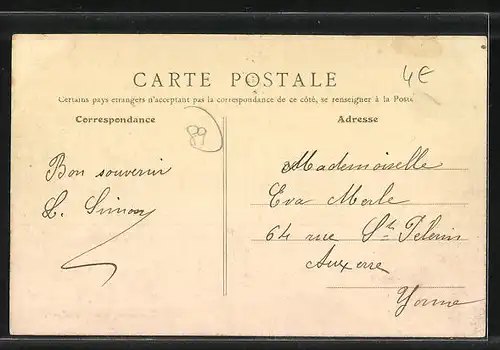 CARTE POSTALE
4E
Certains pays étrangers n'acceptant pas la correspondance de ce côté, se renseigner à la Poste
Correspondance
Adresse
89
Bon souvenir
L. Simon
Mademoiselle
Eva Merle
64 rue St Pelerin
Auxerre
Yonne